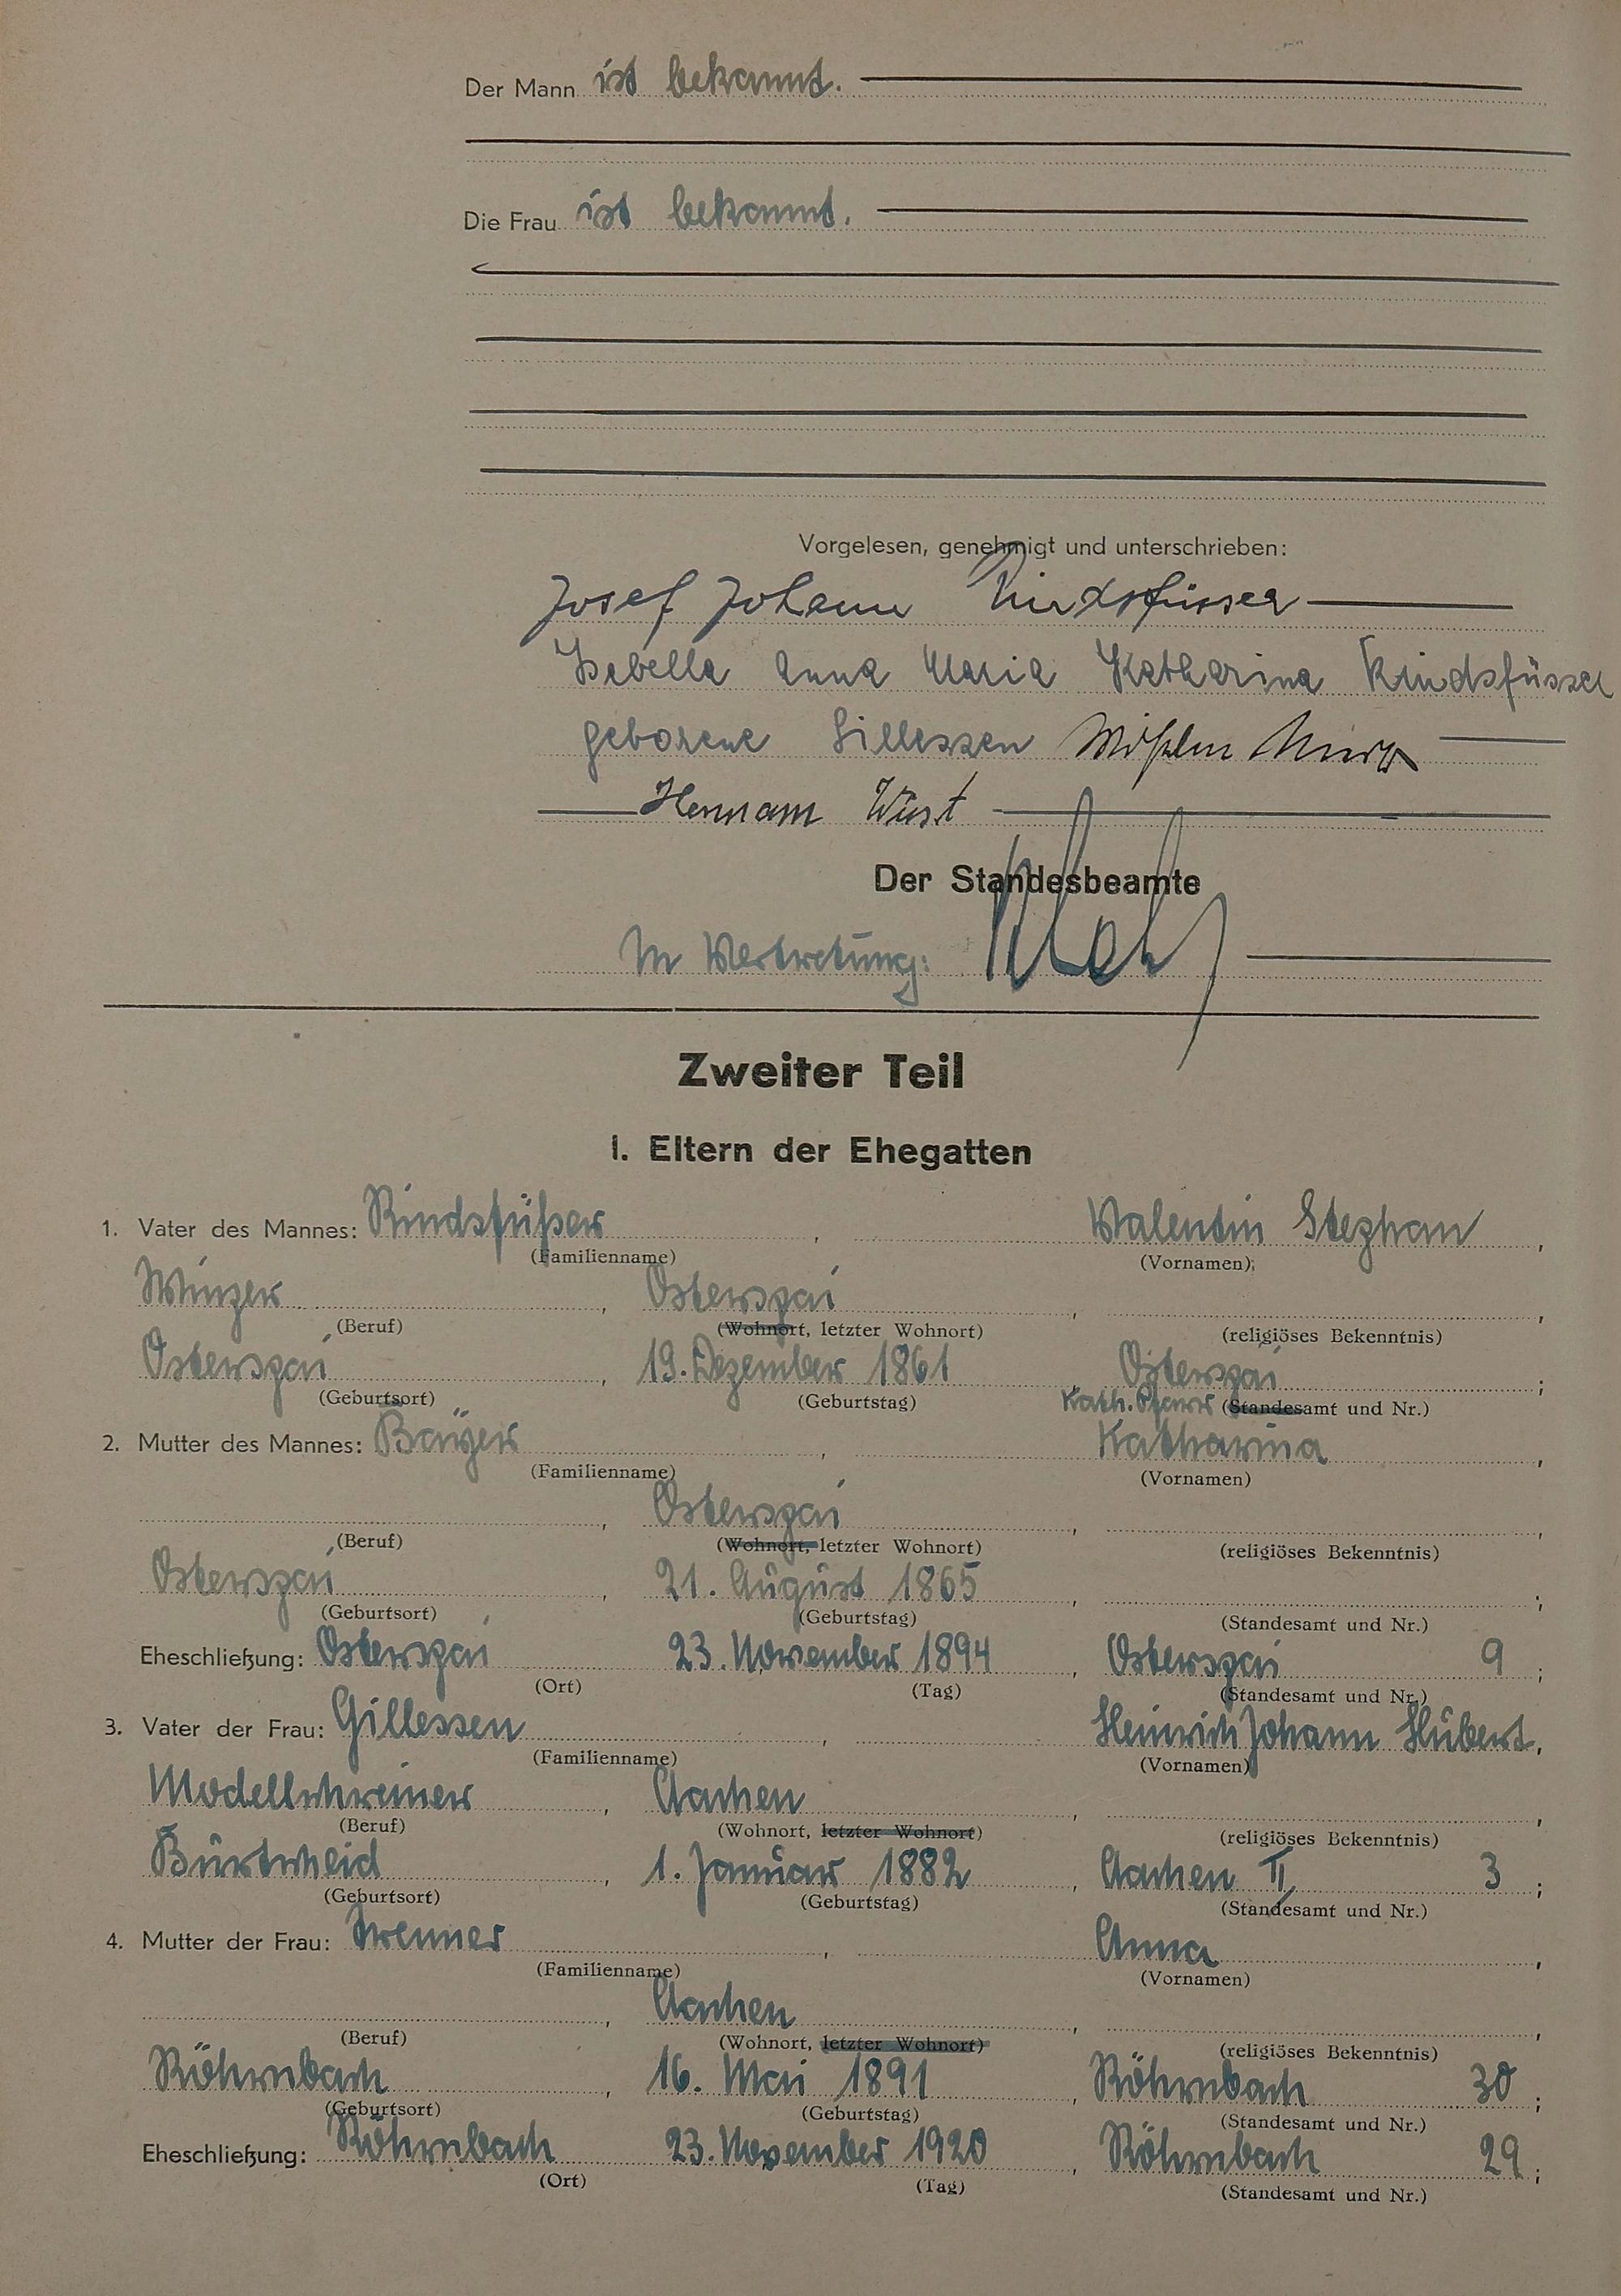 Der Mann ist bekannt.
Die Frau ist bekannt.
Vorgelesen, genehmigt und unterschrieben:
Josef Johann Rindsfüsser
Isabella Anna Maria Katharina Rindsfüsser
geborene Gillessen
Hermann Wüst
Der Standesbeamte
In Vertretung:
Zweiter Teil
I. Eltern der Ehegatten
1. Vater des Mannes: Rindsfüßer, Valentin Stephan,
(Familienname) (Vornamen);
Winzer, Osterspai, ,
(Beruf) (Wohnort, letzter Wohnort) (religiöses Bekenntnis)
Osterspai, 19. Dezember 1861, Osterspai;
(Geburtsort) (Geburtstag) Kath. Pfarr (Standesamt und Nr.)
2. Mutter des Mannes: Bayer, Katharina,
(Familienname) (Vornamen)
, Osterspai, ,
(Beruf) (Wohnort, letzter Wohnort) (religiöses Bekenntnis)
Osterspai, 21. August 1865, ;
(Geburtsort) (Geburtstag) (Standesamt und Nr.)
Eheschließung: Osterspai 23. November 1894, Osterspai 9;
(Ort) (Tag) (Standesamt und Nr.)
3. Vater der Frau: Gillessen, Heinrich Johann Hubert,
(Familienname) (Vornamen)
Modellschreiner, Aachen, ,
(Beruf) (Wohnort, letzter Wohnort) (religiöses Bekenntnis)
Burtscheid, 1. Januar 1882, Aachen II 3;
(Geburtsort) (Geburtstag) (Standesamt und Nr.)
4. Mutter der Frau: , Anna,
(Familienname) (Vornamen)
, Aachen, ,
(Beruf) (Wohnort, letzter Wohnort) (religiöses Bekenntnis)
Röhrnbach, 16. Mai 1891, Röhrnbach 30;
(Geburtsort) (Geburtstag) (Standesamt und Nr.)
Eheschließung: Röhrnbach 23. November 1920, Röhrnbach 29;
(Ort) (Tag) (Standesamt und Nr.)